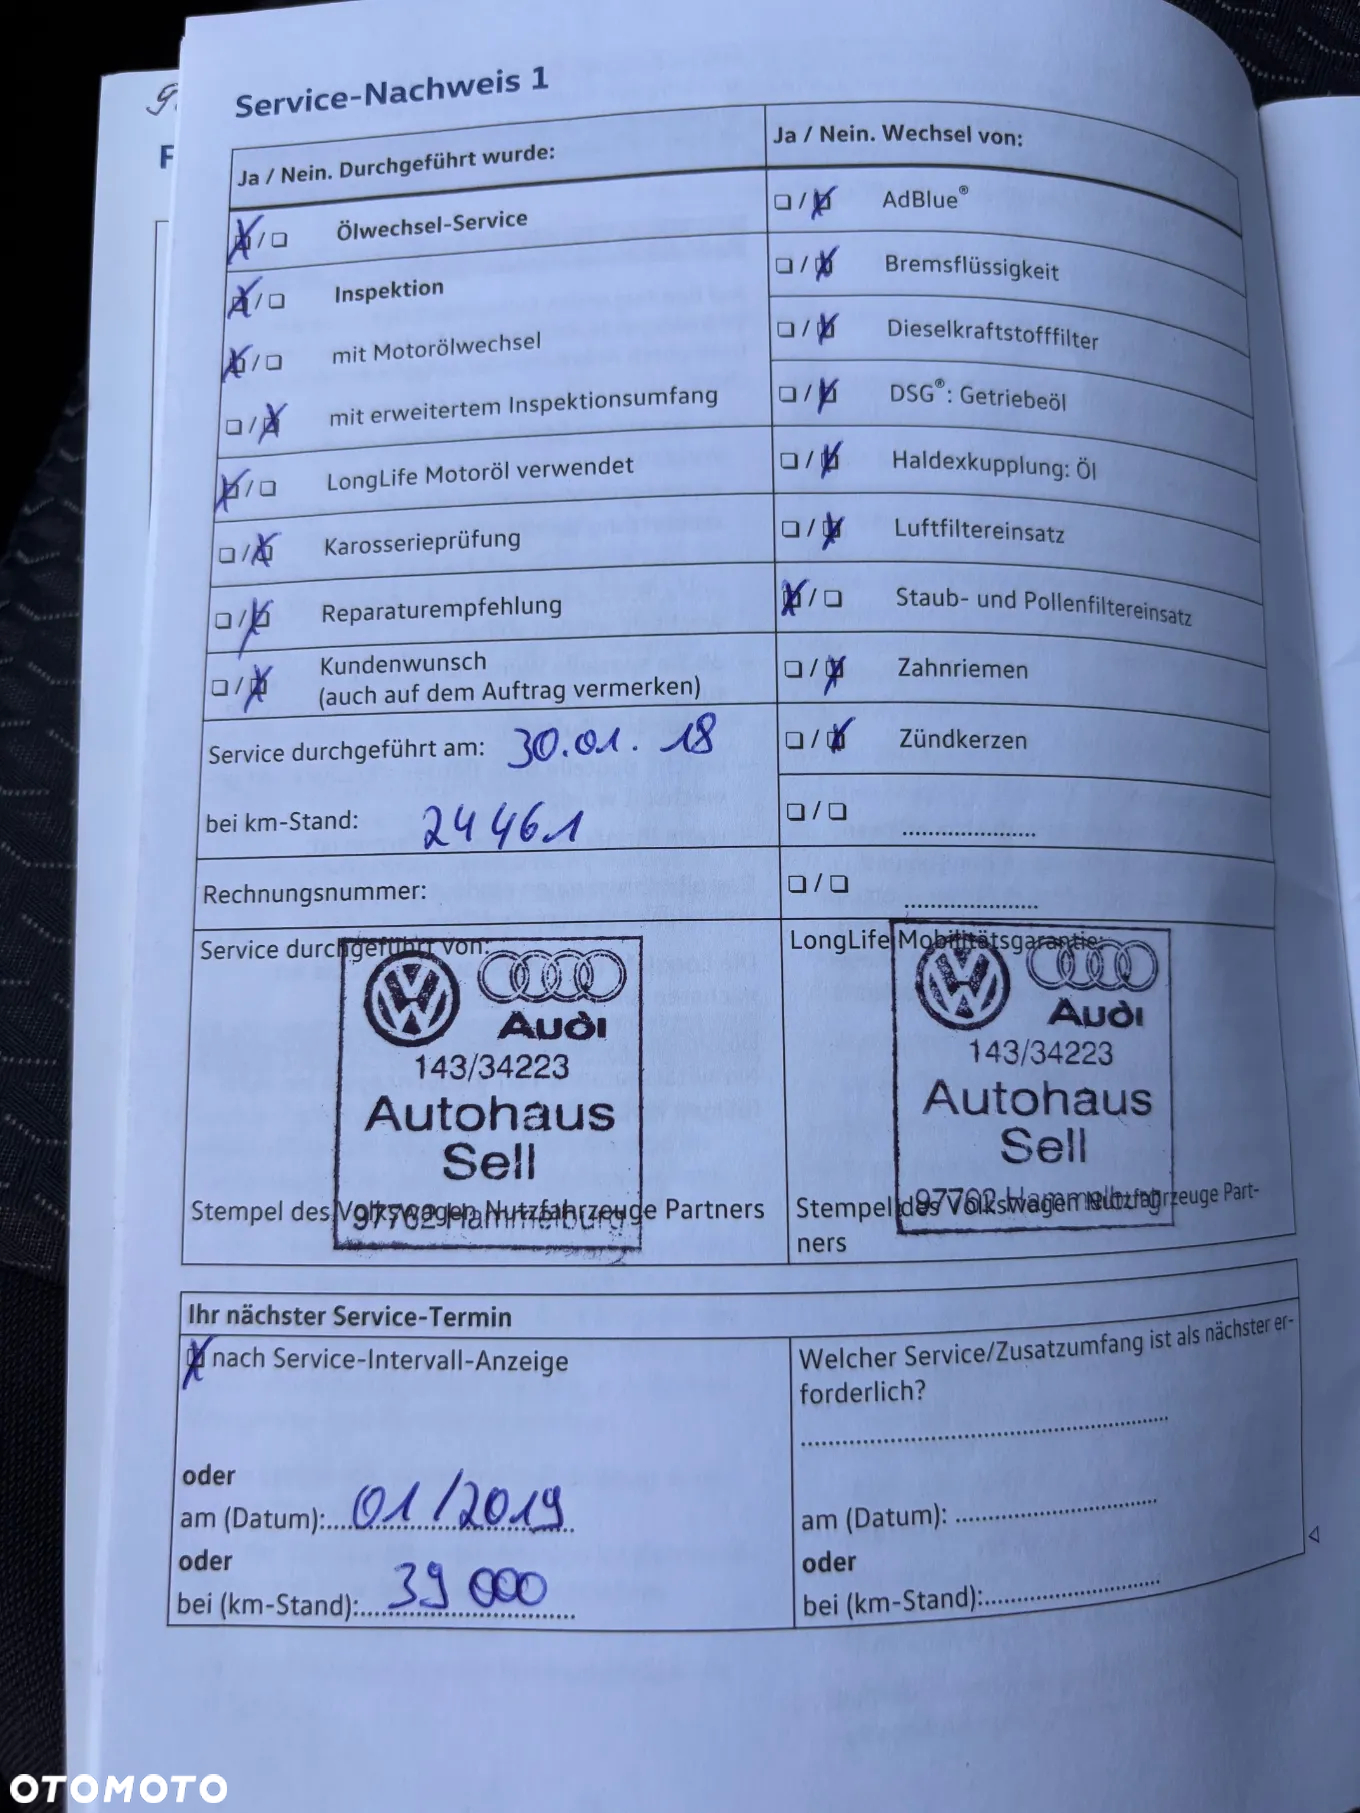 Service-Nachweis 1
F
Ja / Nein. Durchgeführt wurde:
Ölwechsel-Service
Inspektion
mit Motorölwechsel
mit erweitertem Inspektionsumfang
LongLife Motoröl verwendet
Karosserieprüfung
Reparaturempfehlung
Kundenwunsch
(auch auf dem Auftrag vermerken)
Service durchgeführt am: 30.01.18
bei km-Stand: 24461
Rechnungsnummer:
Ja / Nein. Wechsel von:
AdBlue®
Bremsflüssigkeit
Dieselkraftstofffilter
DSG®: Getriebeöl
Haldexkupplung: Öl
Luftfiltereinsatz
Staub- und Pollenfiltereinsatz
Zahnriemen
Zündkerzen
Service durchgeführt von:
Audi
143/34223
Autohaus
Sell
97762 Hammelburg
Stempel des Volkswagen Nutzfahrzeuge Partners
LongLife Mobilitätsgarantie:
Audi
143/34223
Autohaus
Sell
97762 Hammelburg
Stempel des Volkswagen Nutzfahrzeuge Part-
ners
Ihr nächster Service-Termin
nach Service-Intervall-Anzeige
oder
am (Datum): 01/2019
oder
bei (km-Stand): 39 000
Welcher Service/Zusatzumfang ist als nächster er-
forderlich?
am (Datum):
oder
bei (km-Stand):
OTOMOTO